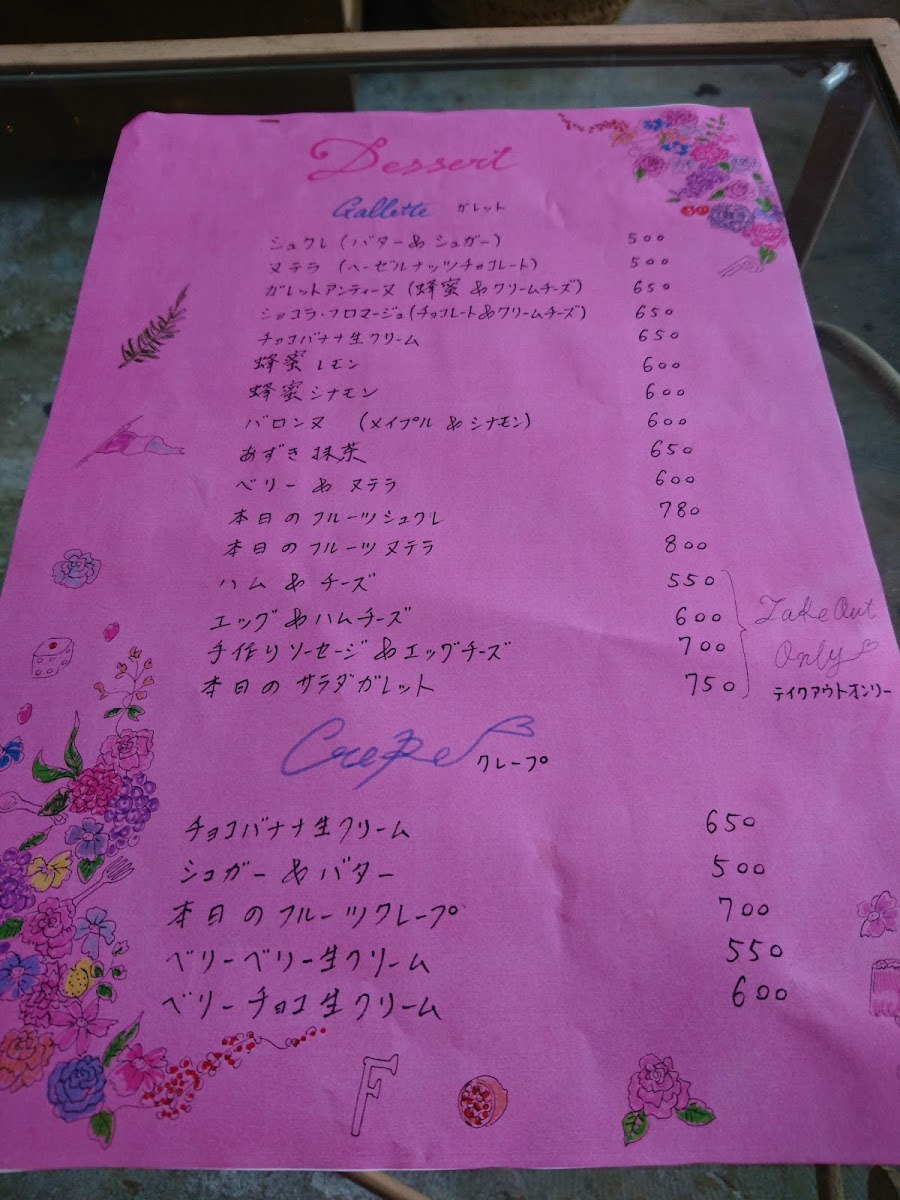 Dessert
Gallette ガレット
シュクレ (バター&シュガー) 500
ヌテラ (ヘーゼルナッツチョコレート) 500
ガレットアンティーヌ (蜂蜜&クリームチーズ) 650
ショコラ・フロマージュ (チョコレート&クリームチーズ) 650
チョコバナナ生クリーム 650
蜂蜜レモン 600
蜂蜜シナモン 600
バロンヌ (メイプル&シナモン) 600
あずき抹茶 650
ベリー&ヌテラ 600
本日のフルーツシュクレ 780
本日のフルーツヌテラ 800
ハム&チーズ 550
エッグ&ハムチーズ 600
手作りソーセージ&エッグチーズ 700
本日のサラダガレット 750
Take Out
Only
テイクアウトオンリー
Crepe クレープ
チョコバナナ生クリーム 650
シュガー&バター 500
本日のフルーツクレープ 700
ベリーベリー生クリーム 550
ベリーチョコ生クリーム 600
F